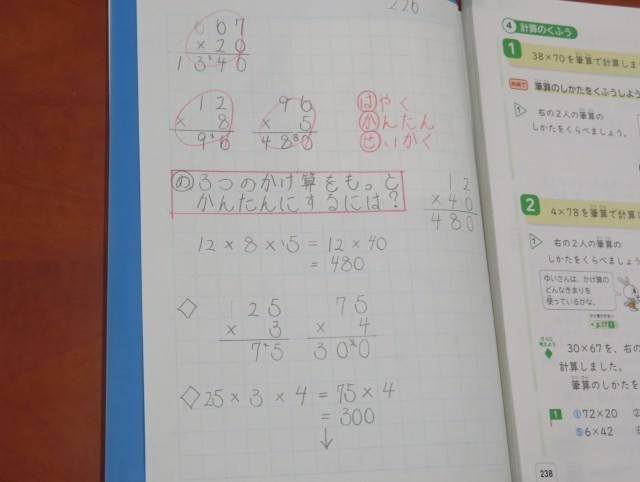 226
607
×20
13²40
12
×8
9¹6
96
×5
48³0
はやく
かんたん
せいかく
め 3つのかけ算をもっと
かんたんにするには?
12
×40
480
12×8×5=12×40
=480
◇ 125
×3
7¹5
75
×4
30²0
◇25×3×4=75×4
=300
↓
4 計算のくふう
1
38×70を筆算で計算しま
筆算のしかたをくふうしよう
1 右の2人の筆算の
しかたをくらべましょう。
2
4×78を筆算で計算し
1 右の2人の筆算の
しかたをくらべましょう
ゆいさんは、かけ算の
どんなきまりを
使っているかな。
30×67を、右の
計算しました。
筆算のしかたを
1 ①72×20
⑤6×42
238